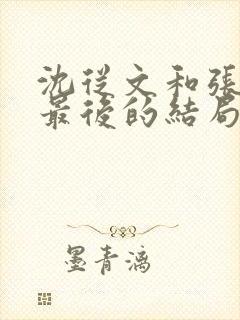 沈從文和張
最後的結局
墨青漓